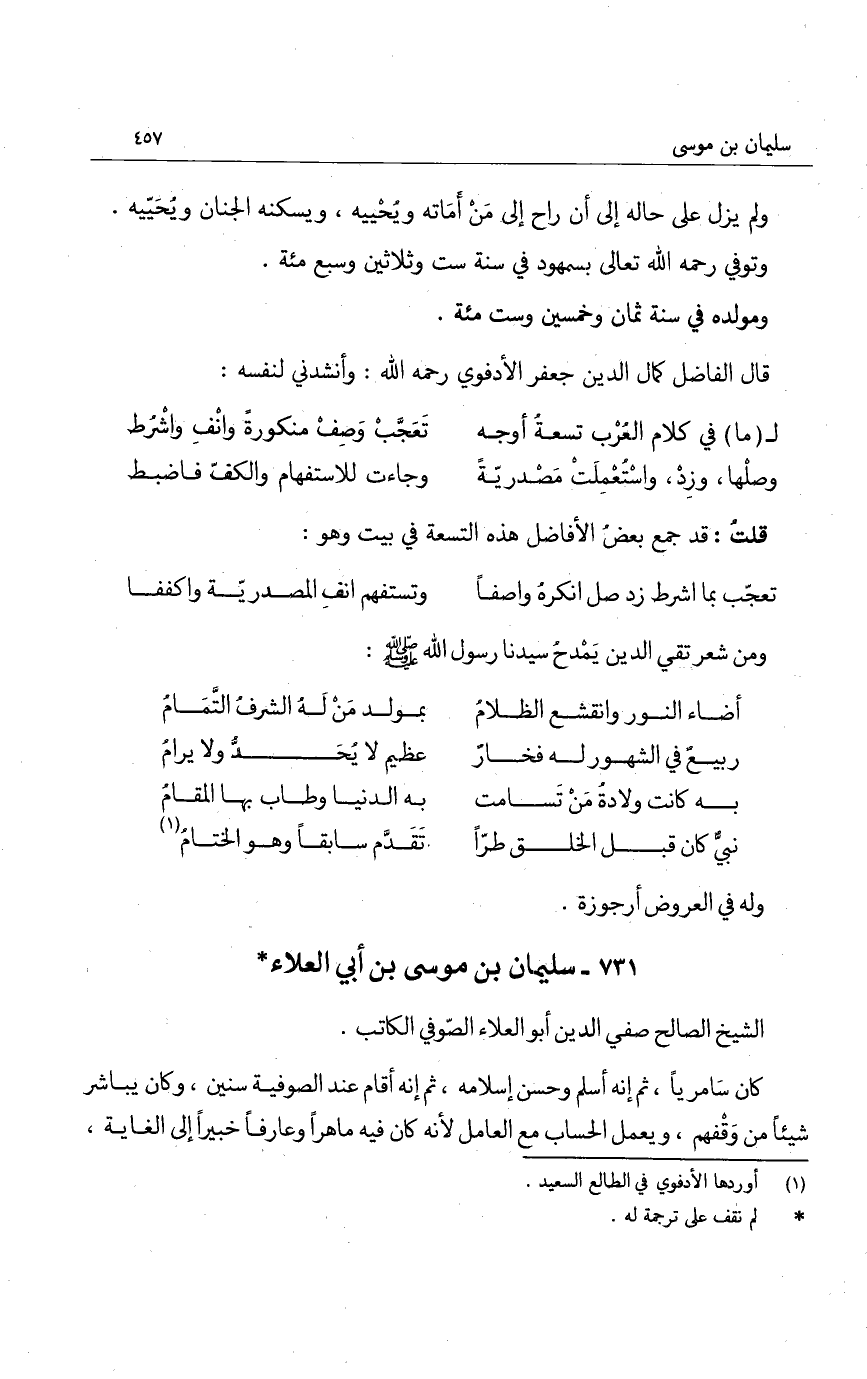 سليمان بن موسى ٤٥٧
ولم يزل على حاله إلى أن راح إلى مَنْ أَمَاته ويُحْييه ، ويسكنه الجنان ويُحَيّيه .
وتوفي رحمه الله تعالى بسمهود في سنة ست وثلاثين وسبع مئة .
ومولده في سنة ثمان وخمسين وست مئة .
قال الفاضل كمال الدين جعفر الأدفوي رحمه الله : وأنشدني لنفسه :
لـ (ما) في كلام العُرْب تسعةُ أوجه تَعَجَّبْ وَصِفْ منكورةً وانْفِ واشْرُط
وصلْها، وزِدْ، واسْتُعْمِلَتْ مَصْدريّةً وجاءت للاستفهام والكفّ فاضبط
قلتُ : قد جمع بعضُ الأفاضل هذه التسعة في بيت وهو :
تعجّب بما اشرط زد صل انكرهُ واصفاً وتستفهم انفِ المصدريّة واكففا
ومن شعر تقي الدين يَمْدحُ سيدنا رسول الله ﷺ :
أضاء النور وانقشع الظلامُ بمولد مَنْ لَهُ الشرفُ التَّمَامُ
ربيعٌ في الشهور له فخارٌ عظيم لا يُحَدُّ ولا يرامُ
به كانت ولادةُ مَنْ تَسامت به الدنيا وطاب بها المقامُ
نبيٌّ كان قبل الخلق طرّاً تَقَدَّم سابقاً وهو الختامُ(١)
وله في العروض أرجوزة .
٧٣١ ـ سليمان بن موسى بن أبي العلاء*
الشيخ الصالح صفي الدين أبو العلاء الصّوفي الكاتب .
كان سَامرياً ، ثم إنه أسلم وحسن إسلامه ، ثم إنه أقام عند الصوفية سنين ، وكان يباشر
شيئاً من وَقْفهم ، ويعمل الحساب مع العامل لأنه كان فيه ماهراً وعارفاً خبيراً إلى الغاية ،
(١) أوردها الأدفوي في الطالع السعيد .
* لم نقف على ترجمة له .